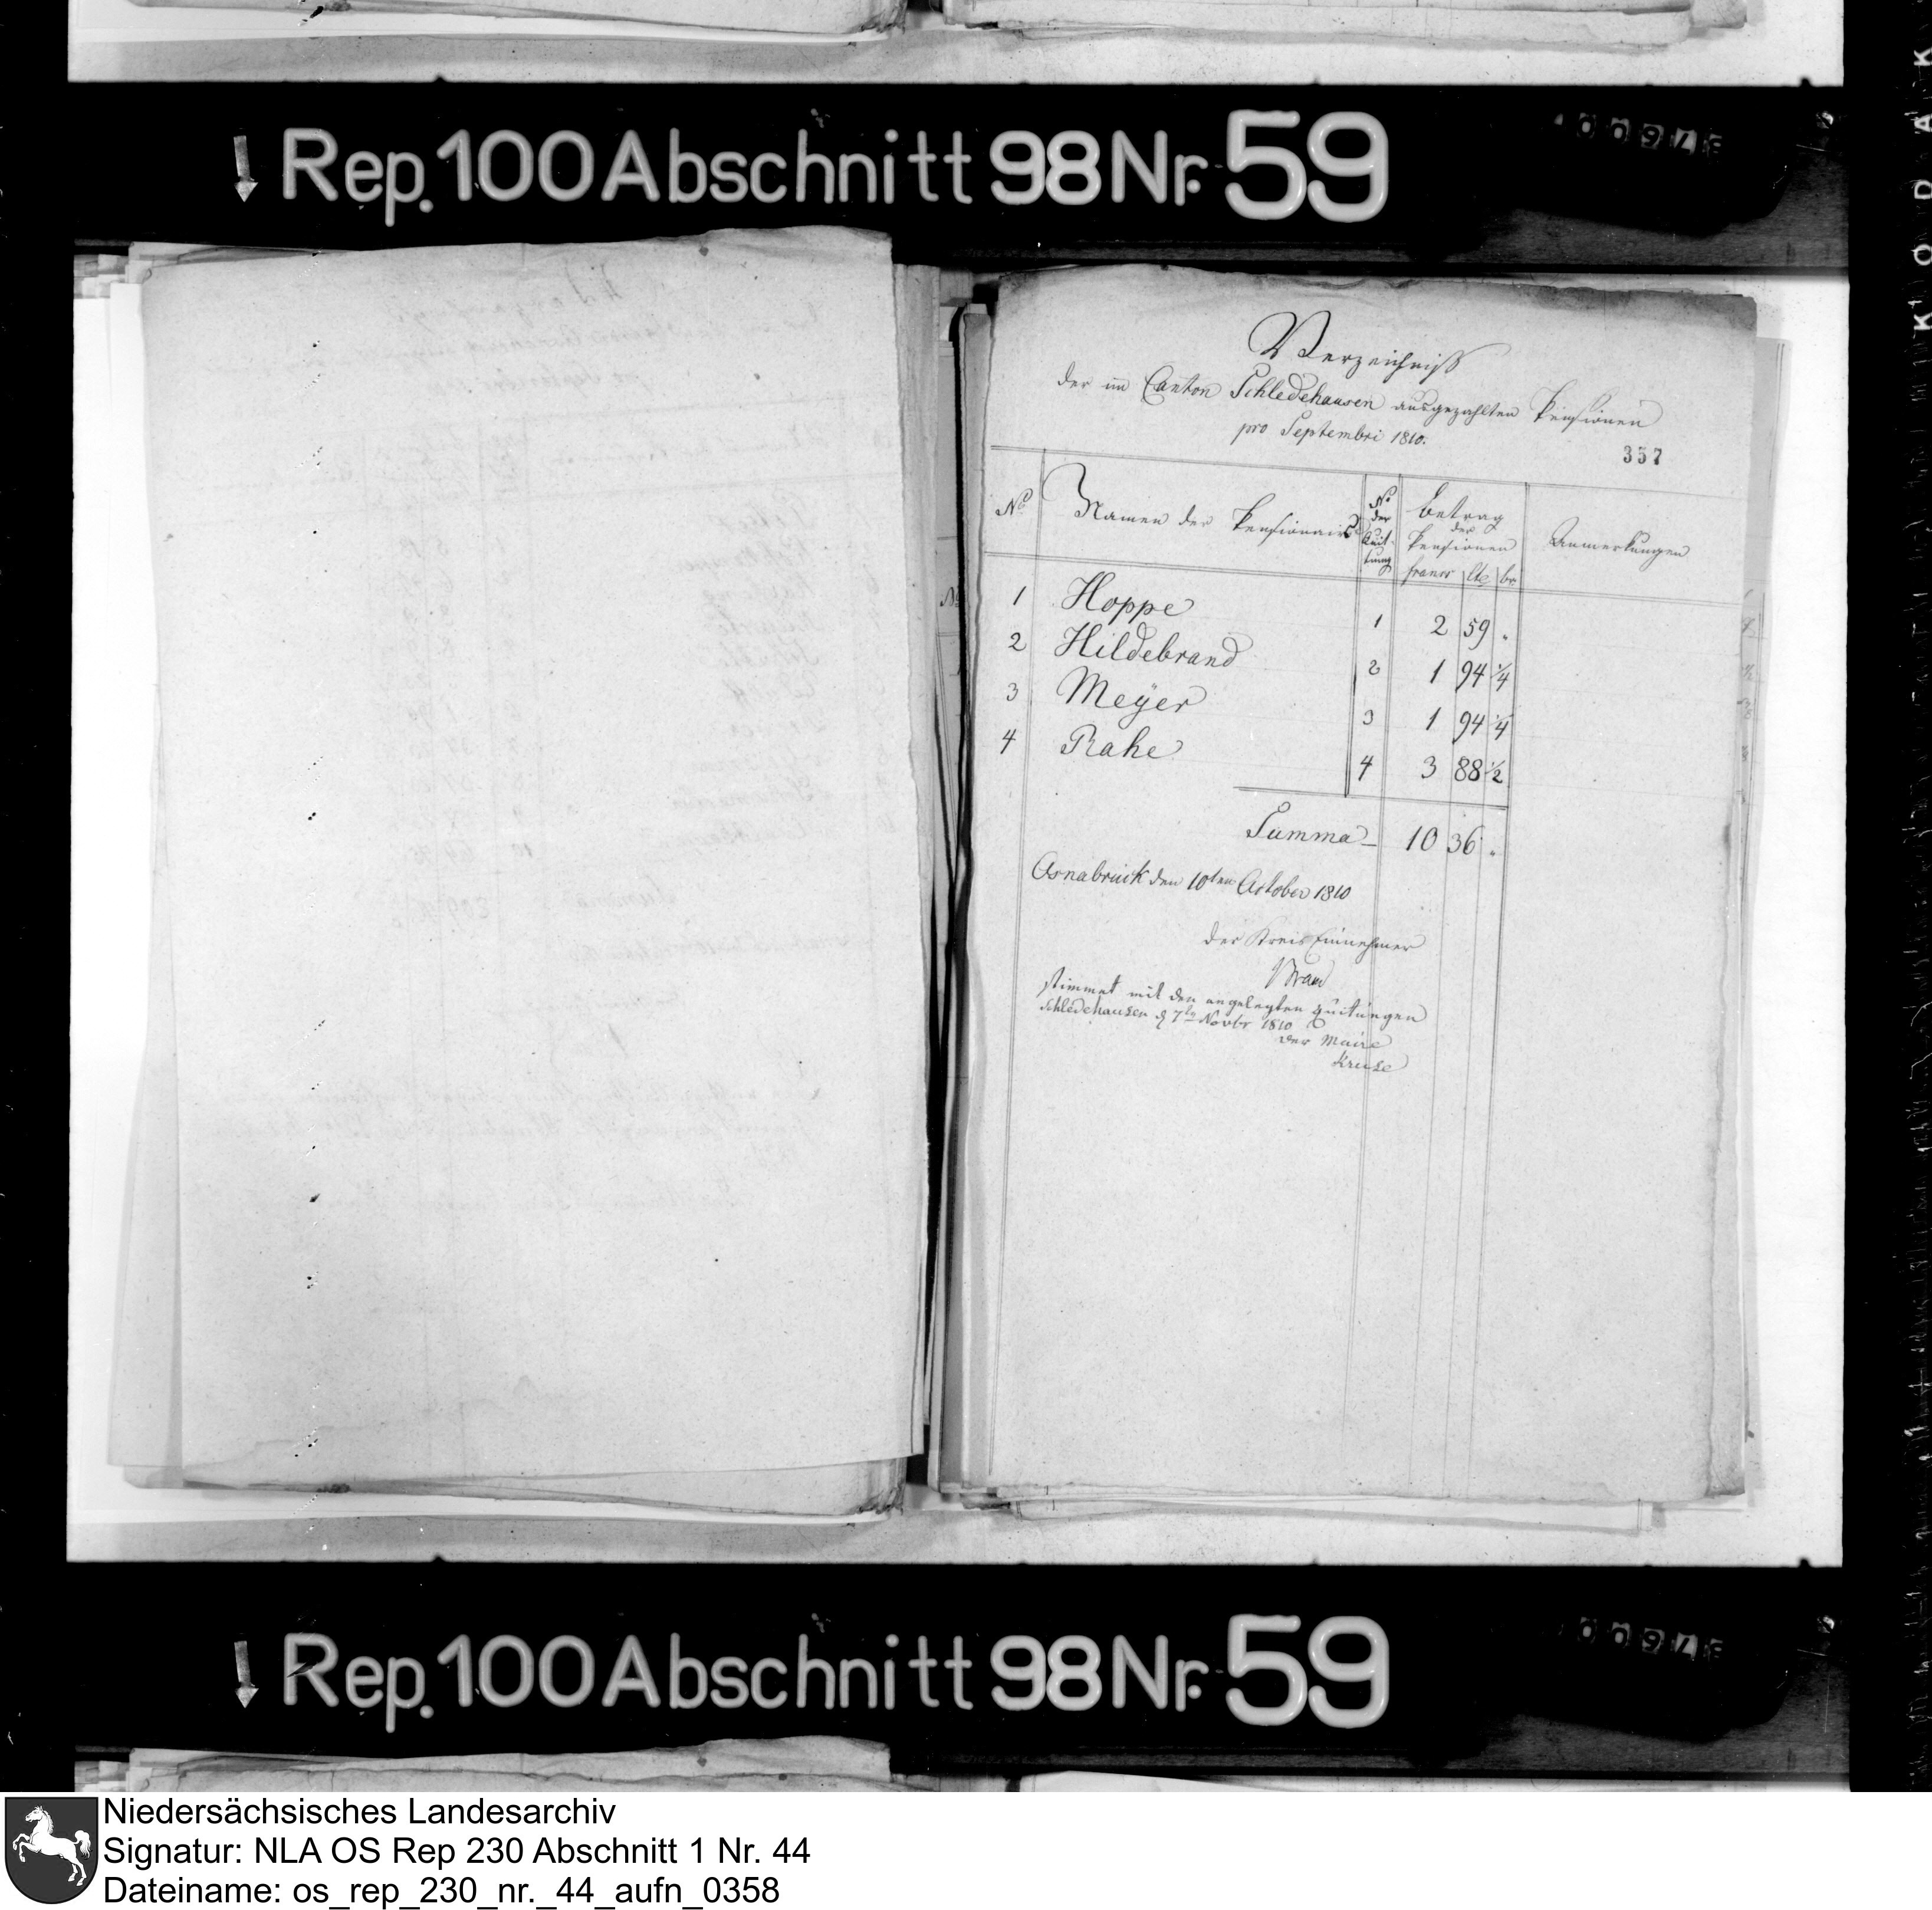 Rep. 100 Abschnitt 98 Nr. 59
Verzeichniß
der im Canton Schledehausen ausgezahlten Pensionen
pro Septembri 1810.
357
No Namen der Pensionairs No der Quit-tung Betrag der Pensionen Anmerkungen
francs
1 Hoppe 1 2 59 "
2 Hildebrand 2 1 94 1/4
3 Meÿer 3 1 94 1/4
4 Rahe 4 3 88 1/2
Summa 10 36 "
Osnabrück den 10ten October 1810
der Kreis Einnehmer
stimmet mit den angelegten Quitungen
Schledehausen d 7ten Novbr 1810
der Maire
Kruse
Rep. 100 Abschnitt 98 Nr. 59
Niedersächsisches Landesarchiv
Signatur: NLA OS Rep 230 Abschnitt 1 Nr. 44
Dateiname: os_rep_230_nr._44_aufn_0358